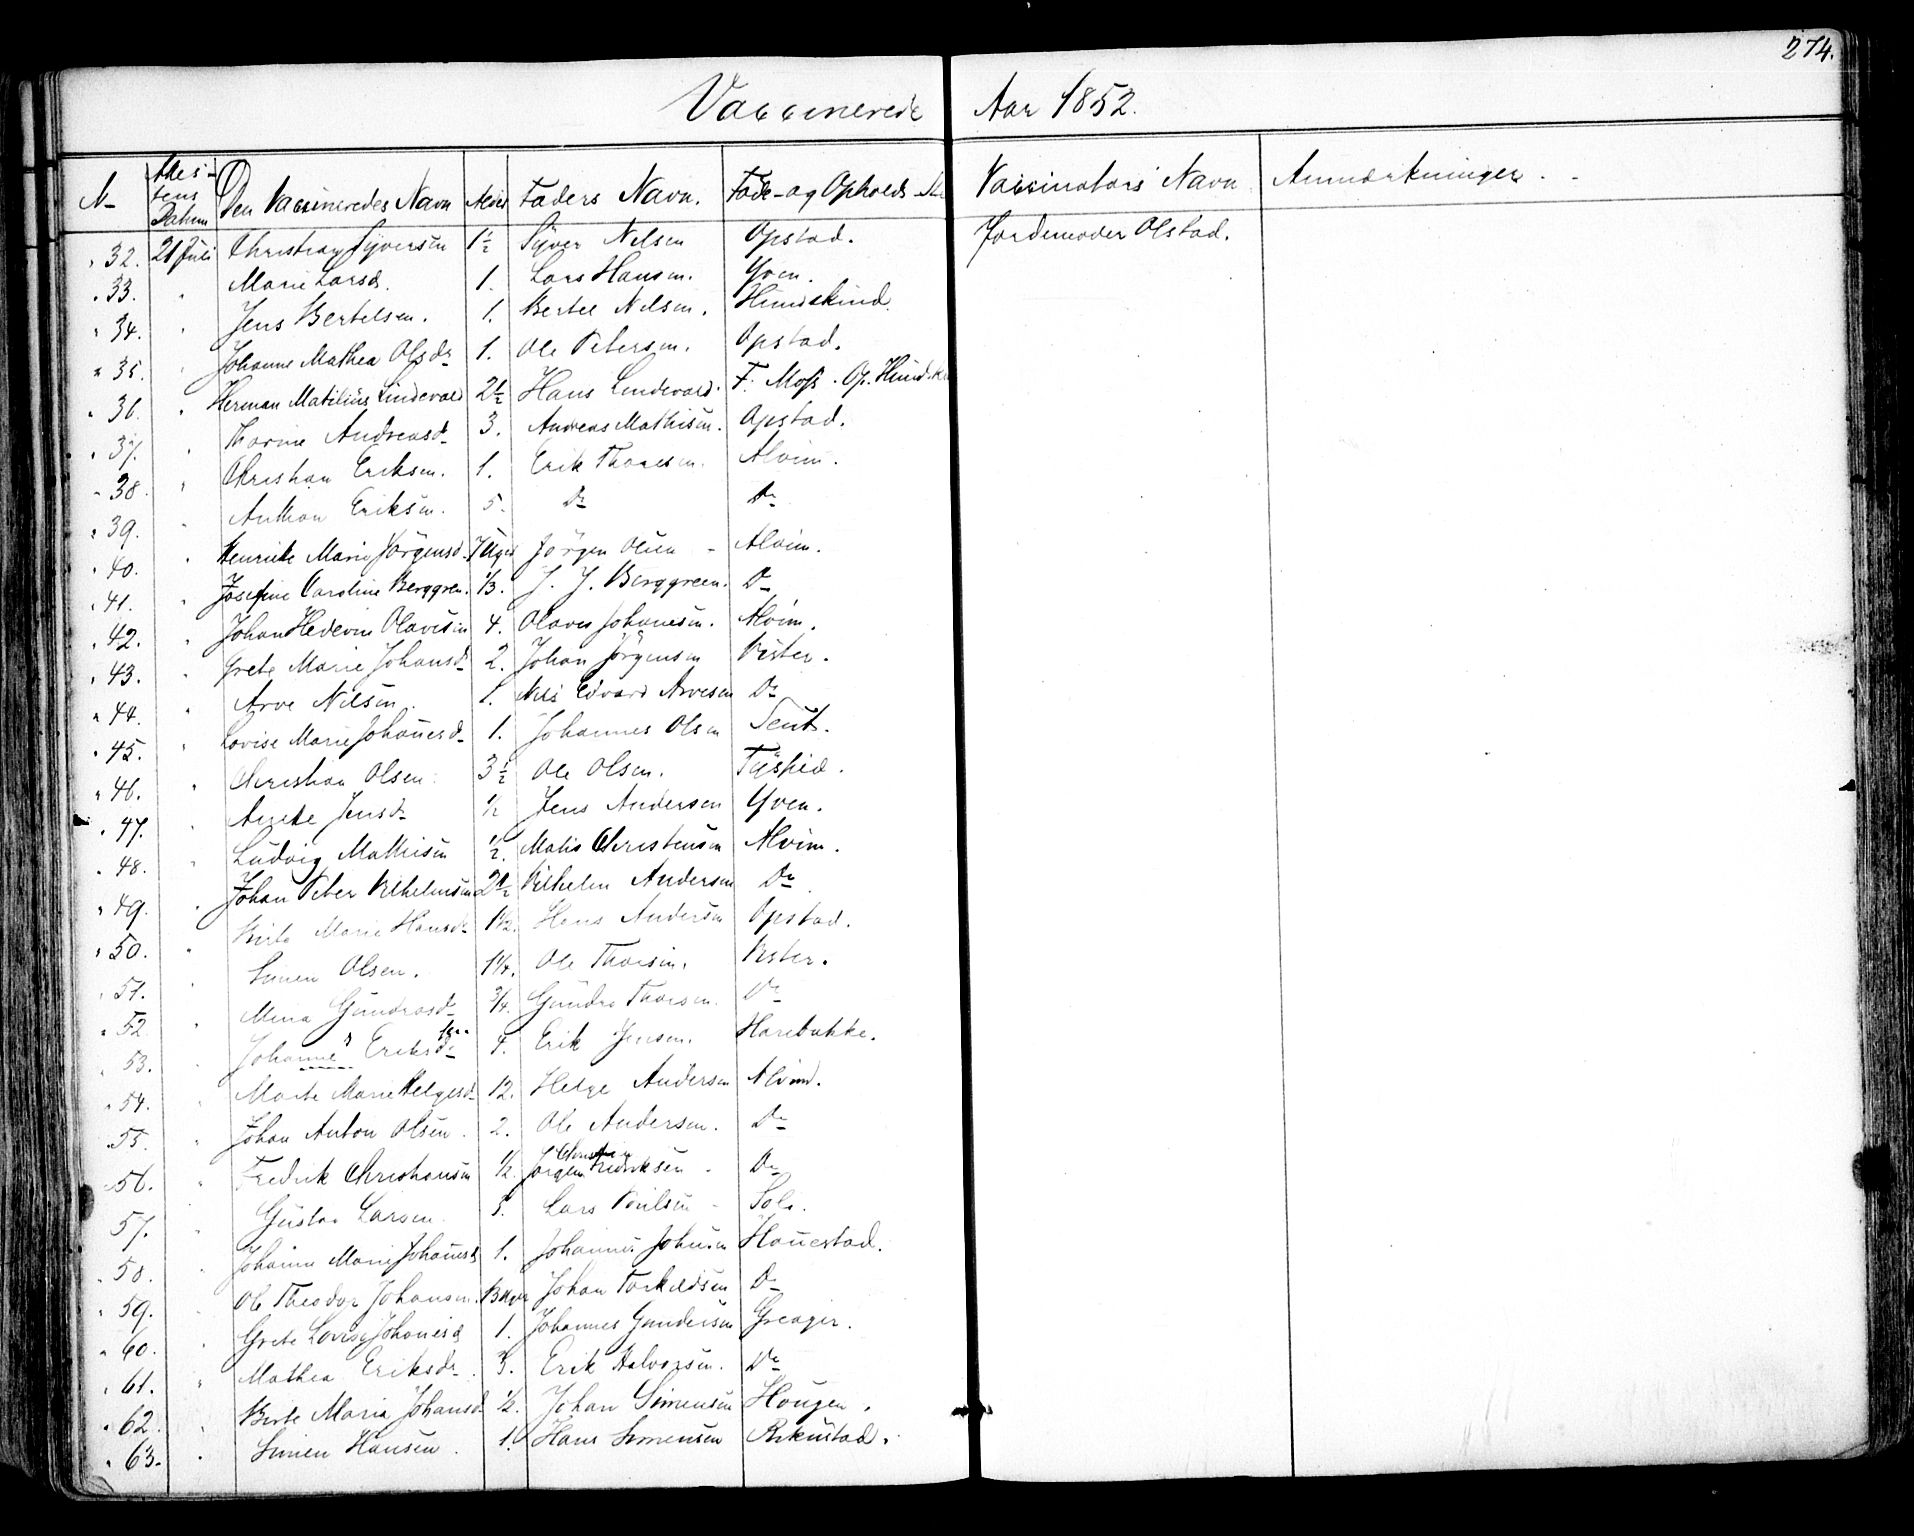 274.
Vaccinerede Aar 1852.
N Attes-tens Datum Den Vaccineredes Navn Alder Faders Navn. Föde- og Opholds- Vaccinators Navn Anmærkninger.
32. 21 Juli Christian Syversen 1½ Syver Nilsen Opstad. Jordemoder Olstad.
33. " Marie Larsd. 1. Lars Hansen. Yven
34. " Jens Bertelsen. 1. Bertel Nilsen. Hundskind.
35. " Johanne Mathea Olsdr 1. Ole Petersen. Opstad.
36. " Herman Matilius Lindevald 2½ Hans Lindevald. F. Moss. Op. Hundsk
37. " Thorine Andreasd. 3. Andreas Mathisen. Opstad.
38. " Christian Eriksen. 1. Erik Thoresen. Alvim.
39. " Anthon Eriksen. 5. Do Do
40. " Henrikke Marie Jörgensd. 7 Uger Jörgen Olsen Alvim.
41. " Josefine Caroline Berggren. ⅓. J. J. Berggreen. Do
42. " Johan Hedevin Olavisen 4. Olaves Johanesen. Alvim.
43. " Grete Marie Johansd. 2. Johan Jörgensen Vister.
44. " Arve Nilsen. 1. Nils Edvard Arvesen Do
45. " Lovise Marie Johanesd. 1. Johannes Olsen Teut.
46. " Christian Olsen. 3½ Ole Olsen.
47. " Anete Jensd. ½ Jens Andersen Yven.
48. " Ludvig Mathisen ½. Matis Christensen Alvim.
49. " Johan Peter Vilhelmsen 2½ Vilhelm Andersen Do
50. " Birte Marie Hansd. 1½. Hans Andersen Opstad.
51. " Simen Olsen. 1¼. Ole Thoresen. Vister.
52 " Mina Gundrosd. ¾. Gundro Thoresen. Do
53. " Johannes Eriksen 4. Erik Jensen. Harebakke.
54. " Marte Marie Helgesd. 12. Helge Andersen Alvim.
55. " Johan Anton Olsen. 2. Ole Andersen. Do
56. " Fredrik Christiansen ½. Jörgen Christian Fredriksen Do
57. " Gustav Larsen. 5. Lars Poulsen Soli.
58. " Johanne Marie Johanesd. 1. Johannes Johnsen Hanestad.
59. " Ole Theodor Johansen. 13 Uger Johan Torkeldsen Do
60. " Grete Lovise Johanesd 1. Johannes Gundersen Greager.
61. " Mathea Eriksdr. 3. Erik Halvorsen. Do
62. " Berte Maria Johansd. ½. Johan Simensen Hougen.
63. " Simen Hansen. 1. Hans Simensen